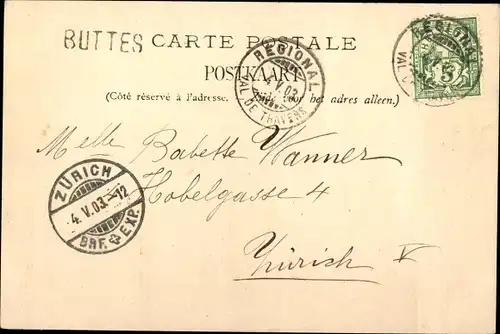 BUTTES CARTE POSTALE
POSTKAART
(Côté réservé à l'adresse. Zijde voor het adres alleen.)
REGIONAL
4.V.03.
VAL DE TRAVERS
REGIONAL
VAL
5
Melle Babette Wanner
Hobelgasse 4
Zürich V
ZÜRICH
4.V.03.-12
BRF. EXP.